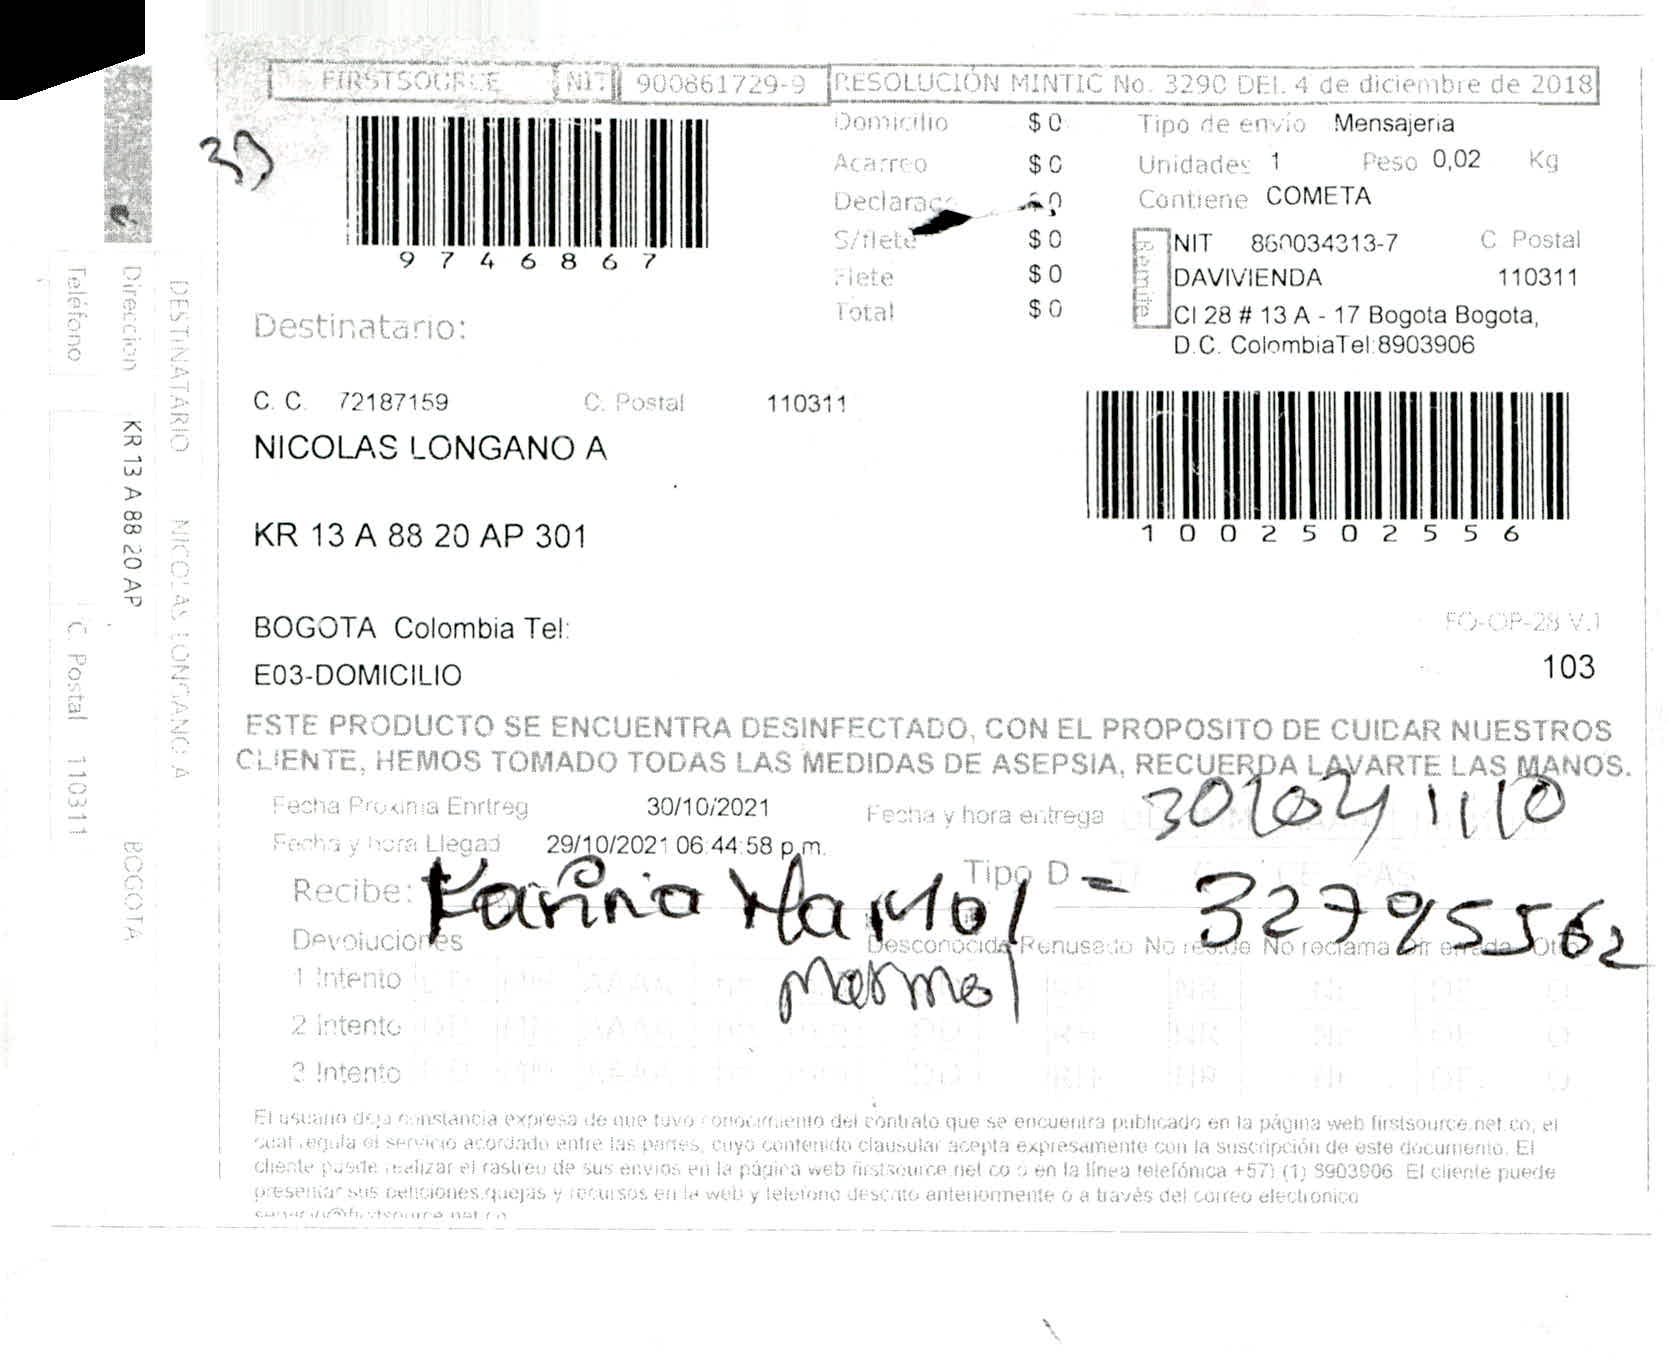 FIRSTSOURCE NIT: 900861729-9 RESOLUCIÓN MINTIC No. 3290 DEL 4 de diciembre de 2018
39
9746867
Domicilio $ 0
Acarreo $ 0
Declarado $ 0
S/flete $ 0
Flete $ 0
Total $ 0
Tipo de envío Mensajeria
Unidades 1 Peso 0,02 Kg
Contiene COMETA
Remite
NIT 860034313-7 C. Postal
DAVIVIENDA 110311
Cl 28 # 13 A - 17 Bogota Bogota,
D.C. ColombiaTel:8903906
Destinatario:
C. C. 72187159 C. Postal 110311
NICOLAS LONGANO A
1002502556
KR 13 A 88 20 AP 301
BOGOTA Colombia Tel:
E03-DOMICILIO
FO-OP-28 V.1
103
ESTE PRODUCTO SE ENCUENTRA DESINFECTADO, CON EL PROPOSITO DE CUIDAR NUESTROS
CLIENTE, HEMOS TOMADO TODAS LAS MEDIDAS DE ASEPSIA, RECUERDA LAVARTE LAS MANOS.
Fecha Proxima Enrtreg 30/10/2021 Fecha y hora entrega
Fecha y hora Llegad 29/10/2021 06:44:58 p.m.
Recibe: Karina Marmol Tipo D - 32795562
Marmol
Devoluciones Desconocido Rehusado No reside No reclama Dir errada Otro
1 Intento
2 Intento
3 Intento
El usuario deja constancia expresa de que tuvo conocimiento del contrato que se encuentra publicado en la página web firstsource.net.co, el
cual regula el servicio acordado entre las partes, cuyo contenido clausular acepta expresamente con la suscripción de este documento. El
cliente puede realizar el rastreo de sus envios en la página web firstsource.net.co o en la línea telefónica +57) (1) 8903906 El cliente puede
presentar sus peticiones,quejas y recursos en la web y telefono descrito anteriormente o a través del correo electronico
servicio@firstsource.net.co
DESTINATARIO NICOLAS LONGANO A
Direccion KR 13 A 88 20 AP BOGOTA
Teléfono C. Postal 110311